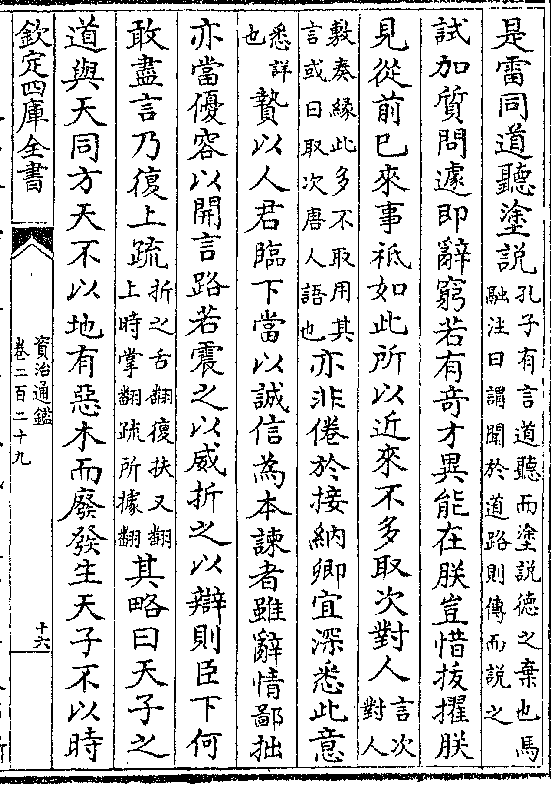 是雷同道聽塗説孔子有言道聽而塗説德之棄也馬融注曰謂聞於道路則傳而説之
試加質問遽即辭窮若有奇才異能在朕豈惜拔擢朕
見從前已來事祗如此所以近來不多取次對人言次對人
敷奏緣此多不取用其言或曰取次唐人語也亦非倦於接納卿宜深悉此意
悉詳也贄以人君臨下當以誠信為本諫者雖辭情鄙拙
亦當優容以開言路若震之以威折之以辯則臣下何
敢盡言乃復上疏折之舌翻復扶又翻上時掌翻疏所據翻其略曰天子之
道與天同方天不以地有惡木而廢發生天子不以時
欽定四庫全書
資治通鑑
卷二百二十九
十六